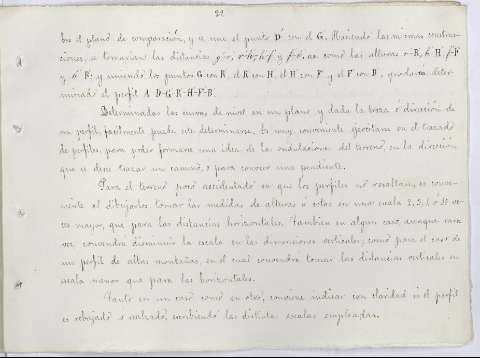 22
bre el plano de comparación, y se une el punto D' con el G. Haciendo las mismas construc-
ciones, se tomarán las distancias g-r, r-h, h-f y f-b, así como las alturas r-R, h-H, f-F
y b-B; y uniendo los puntos G con R, el R con H, el H con F y el F con B, quedará deter-
minado el perfil A-D-G-R-H-F-B.
Determinadas las curvas de nivel en un plano y dada la traza ó dirección de
un perfil, facilmente puede este determinarse. Es muy conveniente ejercitarse en el trazado
de perfiles, para poder formarse una idea de las ondulaciones del terreno, en la dirección
que se desee trazar un camino, ó para conocer una pendiente.
Para el terreno poco accidentado en que los perfiles no resultan, es conve-
niente al dibujarlos tomar las medidas de alturas ó cotas en una escala 2, 5, ó 10 ve-
ces mayor, que para las distancias horizontales. Tambien en algun caso, aunque rara
vez convendrá disminuir la escala en las dimensiones verticales, como para el caso de
un perfil de altas montañas, en el cual convendrá tomar las distancias verticales en
escala menor que para las horizontales.
Tanto en un caso como en otro, conviene indicar con claridad si el perfil
es rebajado ó realzado, escribiendo las distintas escalas empleadas.